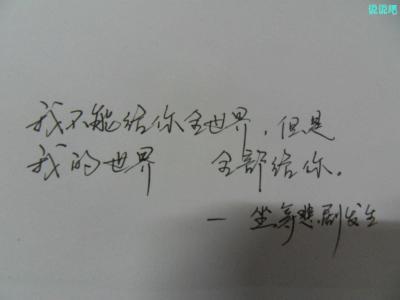 说说吧
我不能给你全世界，但是
我的世界 全部给你。
一 坐等悲剧发生